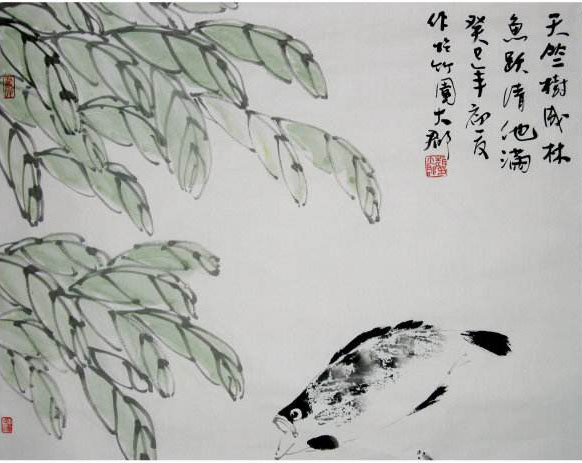 天竺樹成林
魚跃清池滿
癸巳年初夏
作於竹園大郡